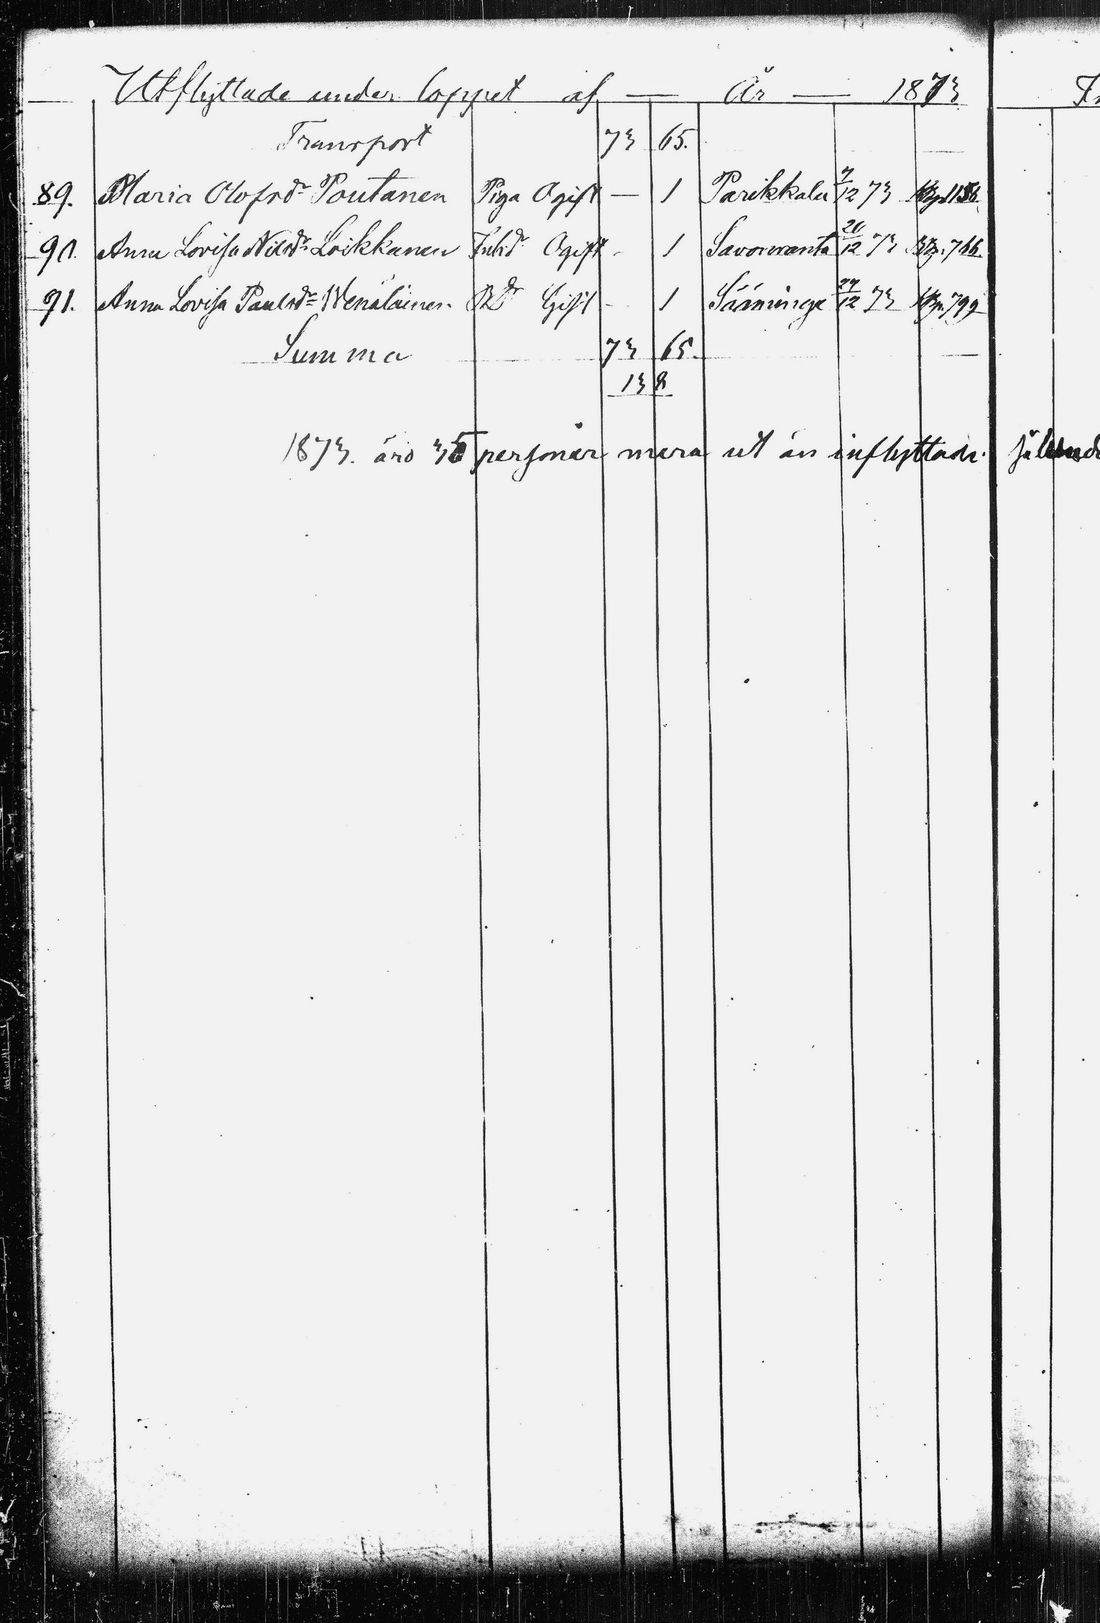 Utflyttade under loppet af — År — 1873
Transport 73 65.
89. Maria Olofsdr Poutanen Piga Ogift — 1 Parikkala 7/12 73
90. Anna Lovisa Nilsdr Loikkanen Inhd. Ogift - 1 Savonranta 20/12 73 766.
91. Anna Lovisa Paulsdr Wenäläinen Bdr Gift - 1 Sääminge 27/12 73 799
Summa 73 65.
138
1873. äro 35 personer mera ut än inflyttade.